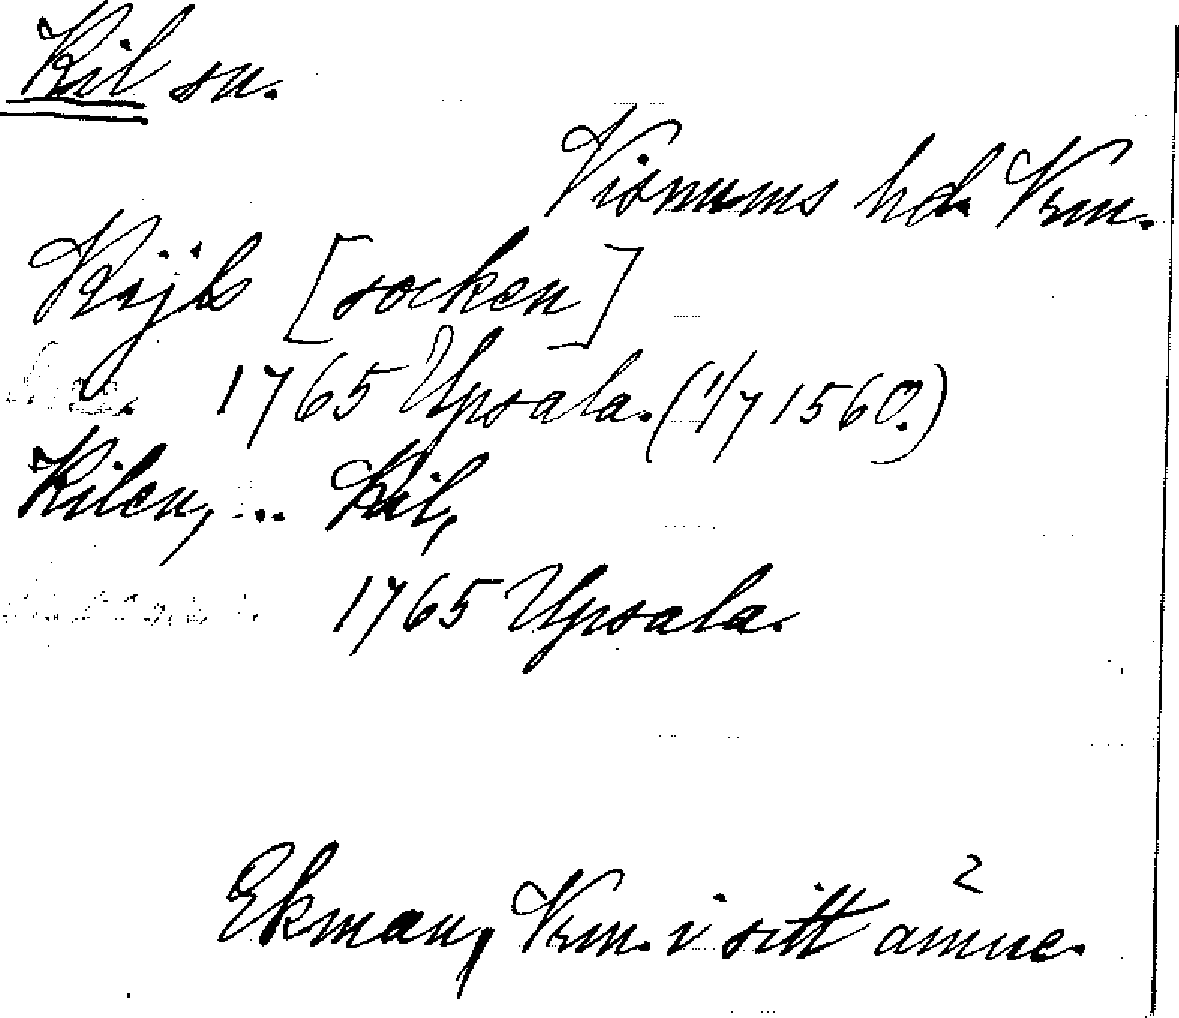 Kil sn.
Visnums hd. Krm.
Kijls [socken]
1765 Upsala. (1/7 1560.)
Kilen, ... Kil,
1765 Upsala.
Ekman, Krm. i sitt ämne.
2